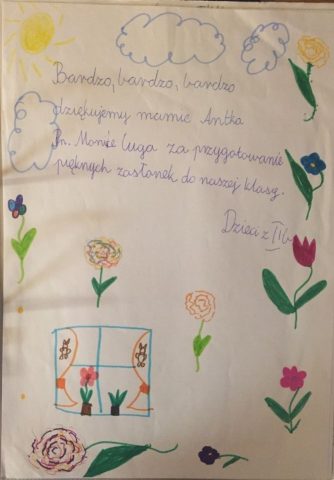 Bardzo, bardzo, bardzo
dziękujemy mamie Antka
Pn. Monice Ługa za przygotowanie
pięknych zasłonek do naszej klasy.
Dzieci z II b